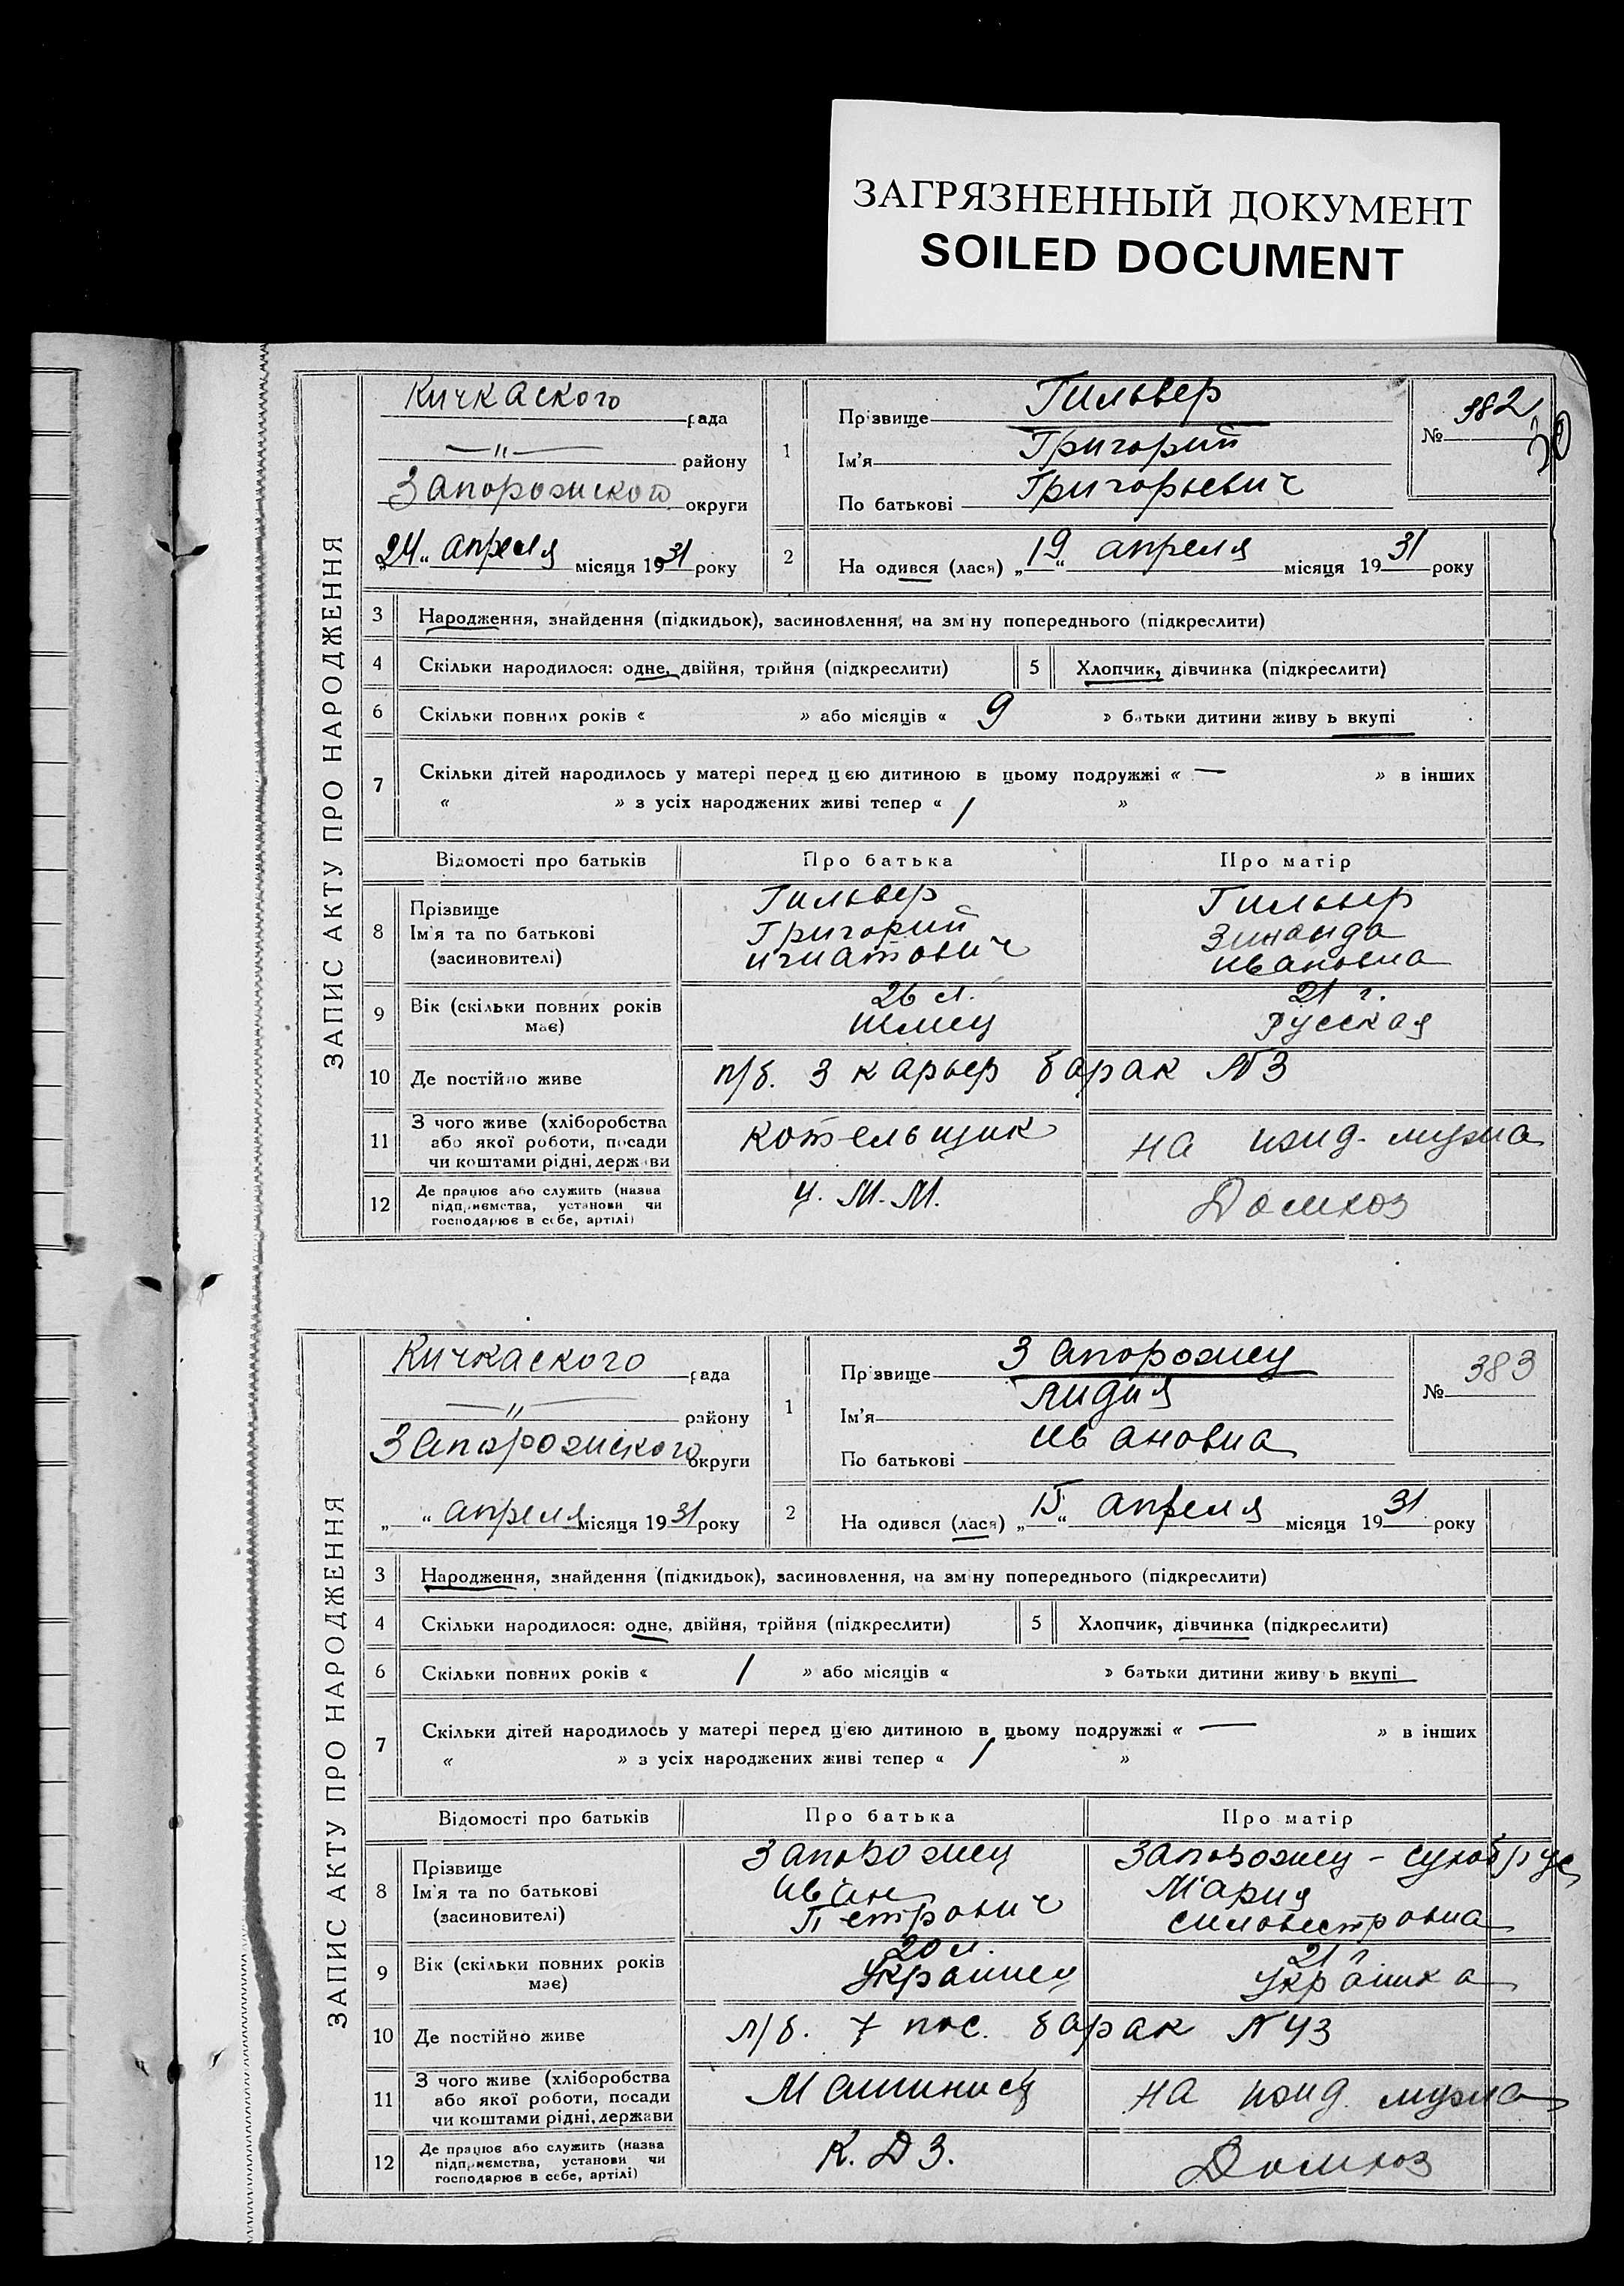 ЗАГРЯЗНЕННЫЙ ДОКУМЕНТ
SOILED DOCUMENT
ЗАПИС АКТУ ПРО НАРОДЖЕННЯ
Кичкаского рада
—"— району
Запорожского округи
„24“ апреля місяця 1931 року
1
Прізвище Гильвер
Ім'я Григорий
По батькові Григорьевич
№ 382
2
На одився (лася) „19“ апреля місяця 1931 року
3 Народження, знайдення (підкидьок), засиновлення, на зміну попереднього (підкреслити)
4 Скільки народилося: одне, двійня, трійня (підкреслити) 5 Хлопчик, дівчинка (підкреслити)
6 Скільки повних років « » або місяців « 9 » батьки дитини живу ь вкупі
7 Скільки дітей народилось у матері перед цією дитиною в цьому подружжі « — » в інших
« » з усіх народжених живі тепер « 1 »
Відомості про батьків Про батька Про матір
8 Прізвище Гильвер Гильвер
Ім'я та по батькові Григорий Зинаида
(засновителі) Игнатович Ивановна
9 Вік (скільки повних років має) 26 л. 21 г.
Немец Русская
10 Де постійно живе п/б. 3 карьер барак N 3
11 З чого живе (хліборобства або якої роботи, посади чи коштами рідні, держави котельщик на ижд. мужа
12 Де працює або служить (назва підприємства, установи чи господарює в себе, артілі) Ц. М. М. Домхоз
ЗАПИС АКТУ ПРО НАРОДЖЕННЯ
Кичкаского рада
—"— району
Запорожского округи
„ “ апреля місяця 1931 року
1
Прізвище Запорожец
Ім'я Лидия
По батькові Ивановна
№ 383
2
На одився (лася) „15“ апреля місяця 1931 року
3 Народження, знайдення (підкидьок), засиновлення, на зміну попереднього (підкреслити)
4 Скільки народилося: одне, двійня, трійня (підкреслити) 5 Хлопчик, дівчинка (підкреслити)
6 Скільки повних років « 1 » або місяців « » батьки дитини живу ь вкупі
7 Скільки дітей народилось у матері перед цією дитиною в цьому подружжі « — » в інших
« » з усіх народжених живі тепер « 1 »
Відомості про батьків Про батька Про матір
8 Прізвище Запорожец Запорожец - Сухобрус
Ім'я та по батькові Иван Мария
(засиновителі) Петрович Сильвестровна
9 Вік (скільки повних років має) 20 л. 21 г
Украинец Украинка
10 Де постійно живе л/б. 7 пос. барак N 43
11 З чого живе (хліборобства або якої роботи, посади чи коштами рідні, держави Машинист на ижд. мужа
12 Де працює або служить (назва підприємства, установи чи господарює в себе, артілі) К. Д З. Домхоз